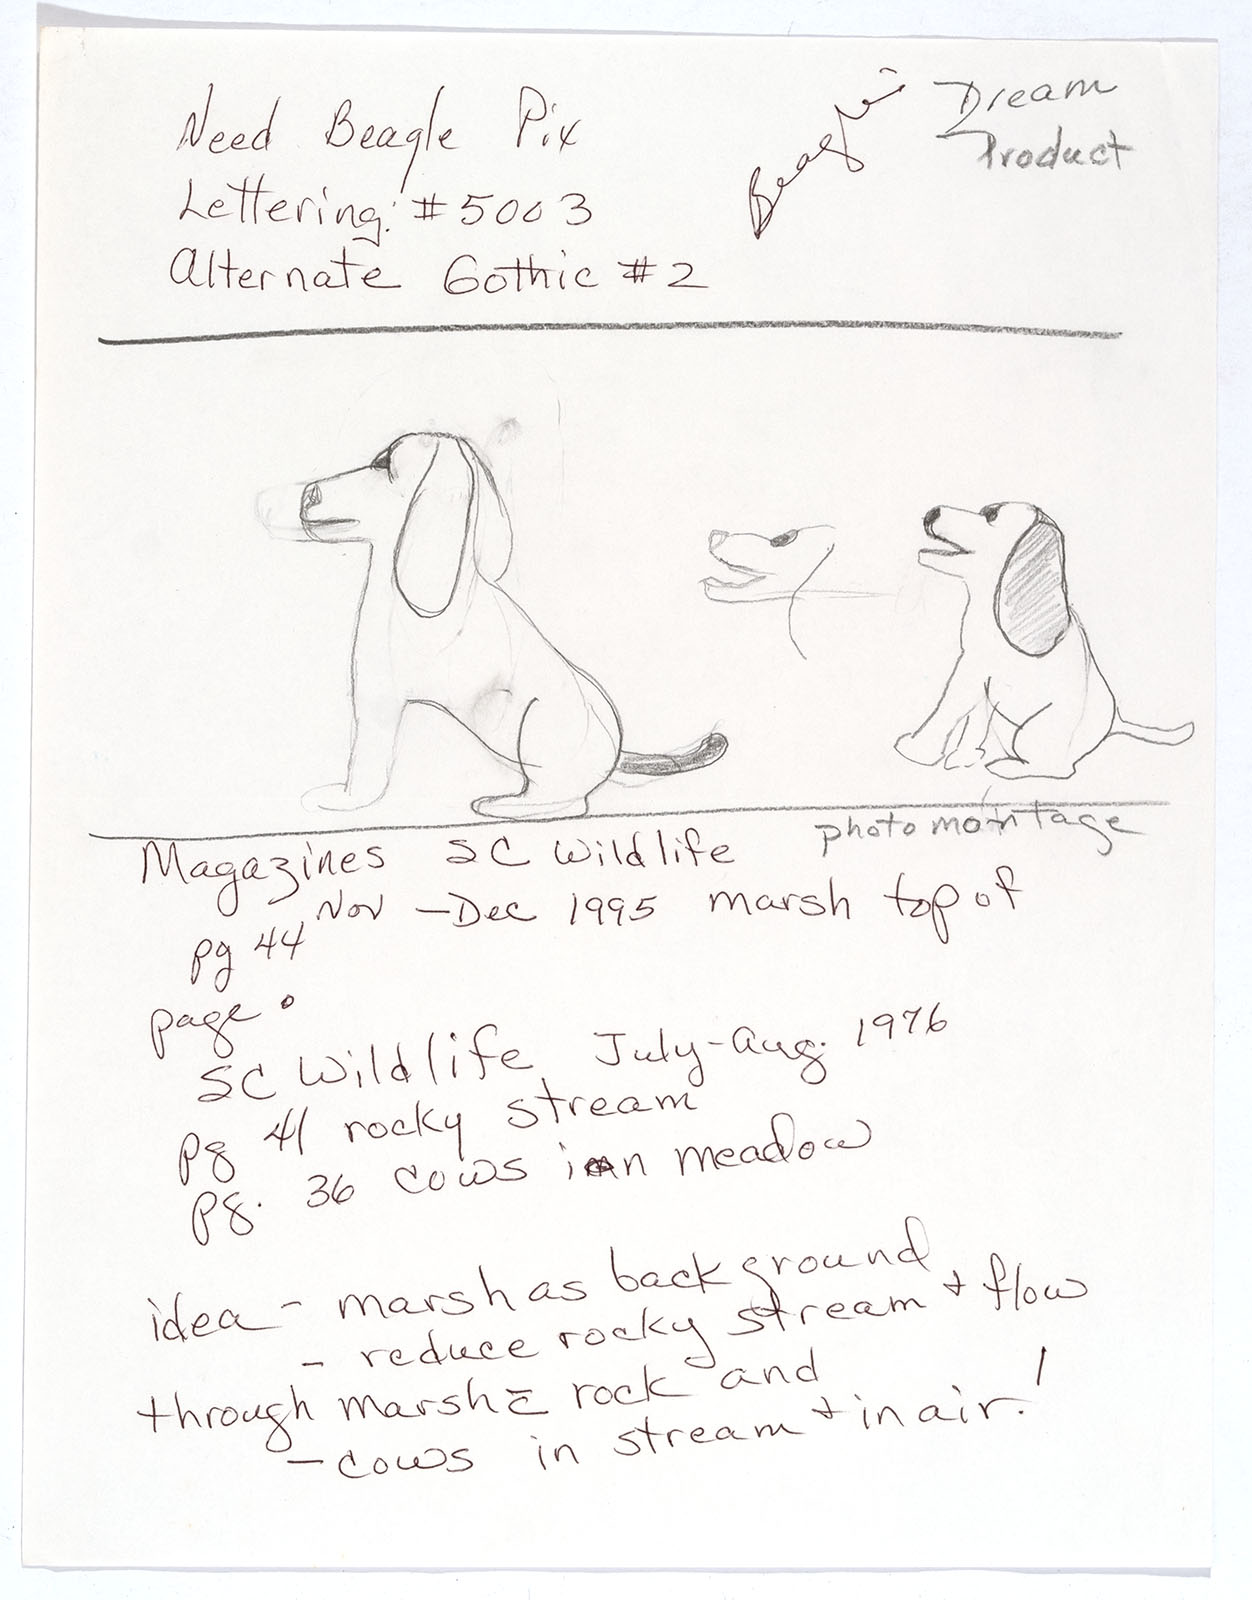 Need Beagle Pix
Lettering: #5003
Alternate Gothic #2
Dream
Product
photo montage
Magazines SC Wildlife
Nov - Dec 1995 marsh top of
pg 44
page.
SC Wildlife July-Aug. 1976
pg 41 rocky stream
pg. 36 cows in meadow
idea - marsh as background
- reduce rocky stream + flow
through marsh c̄ rock and
- cows in stream + in air!